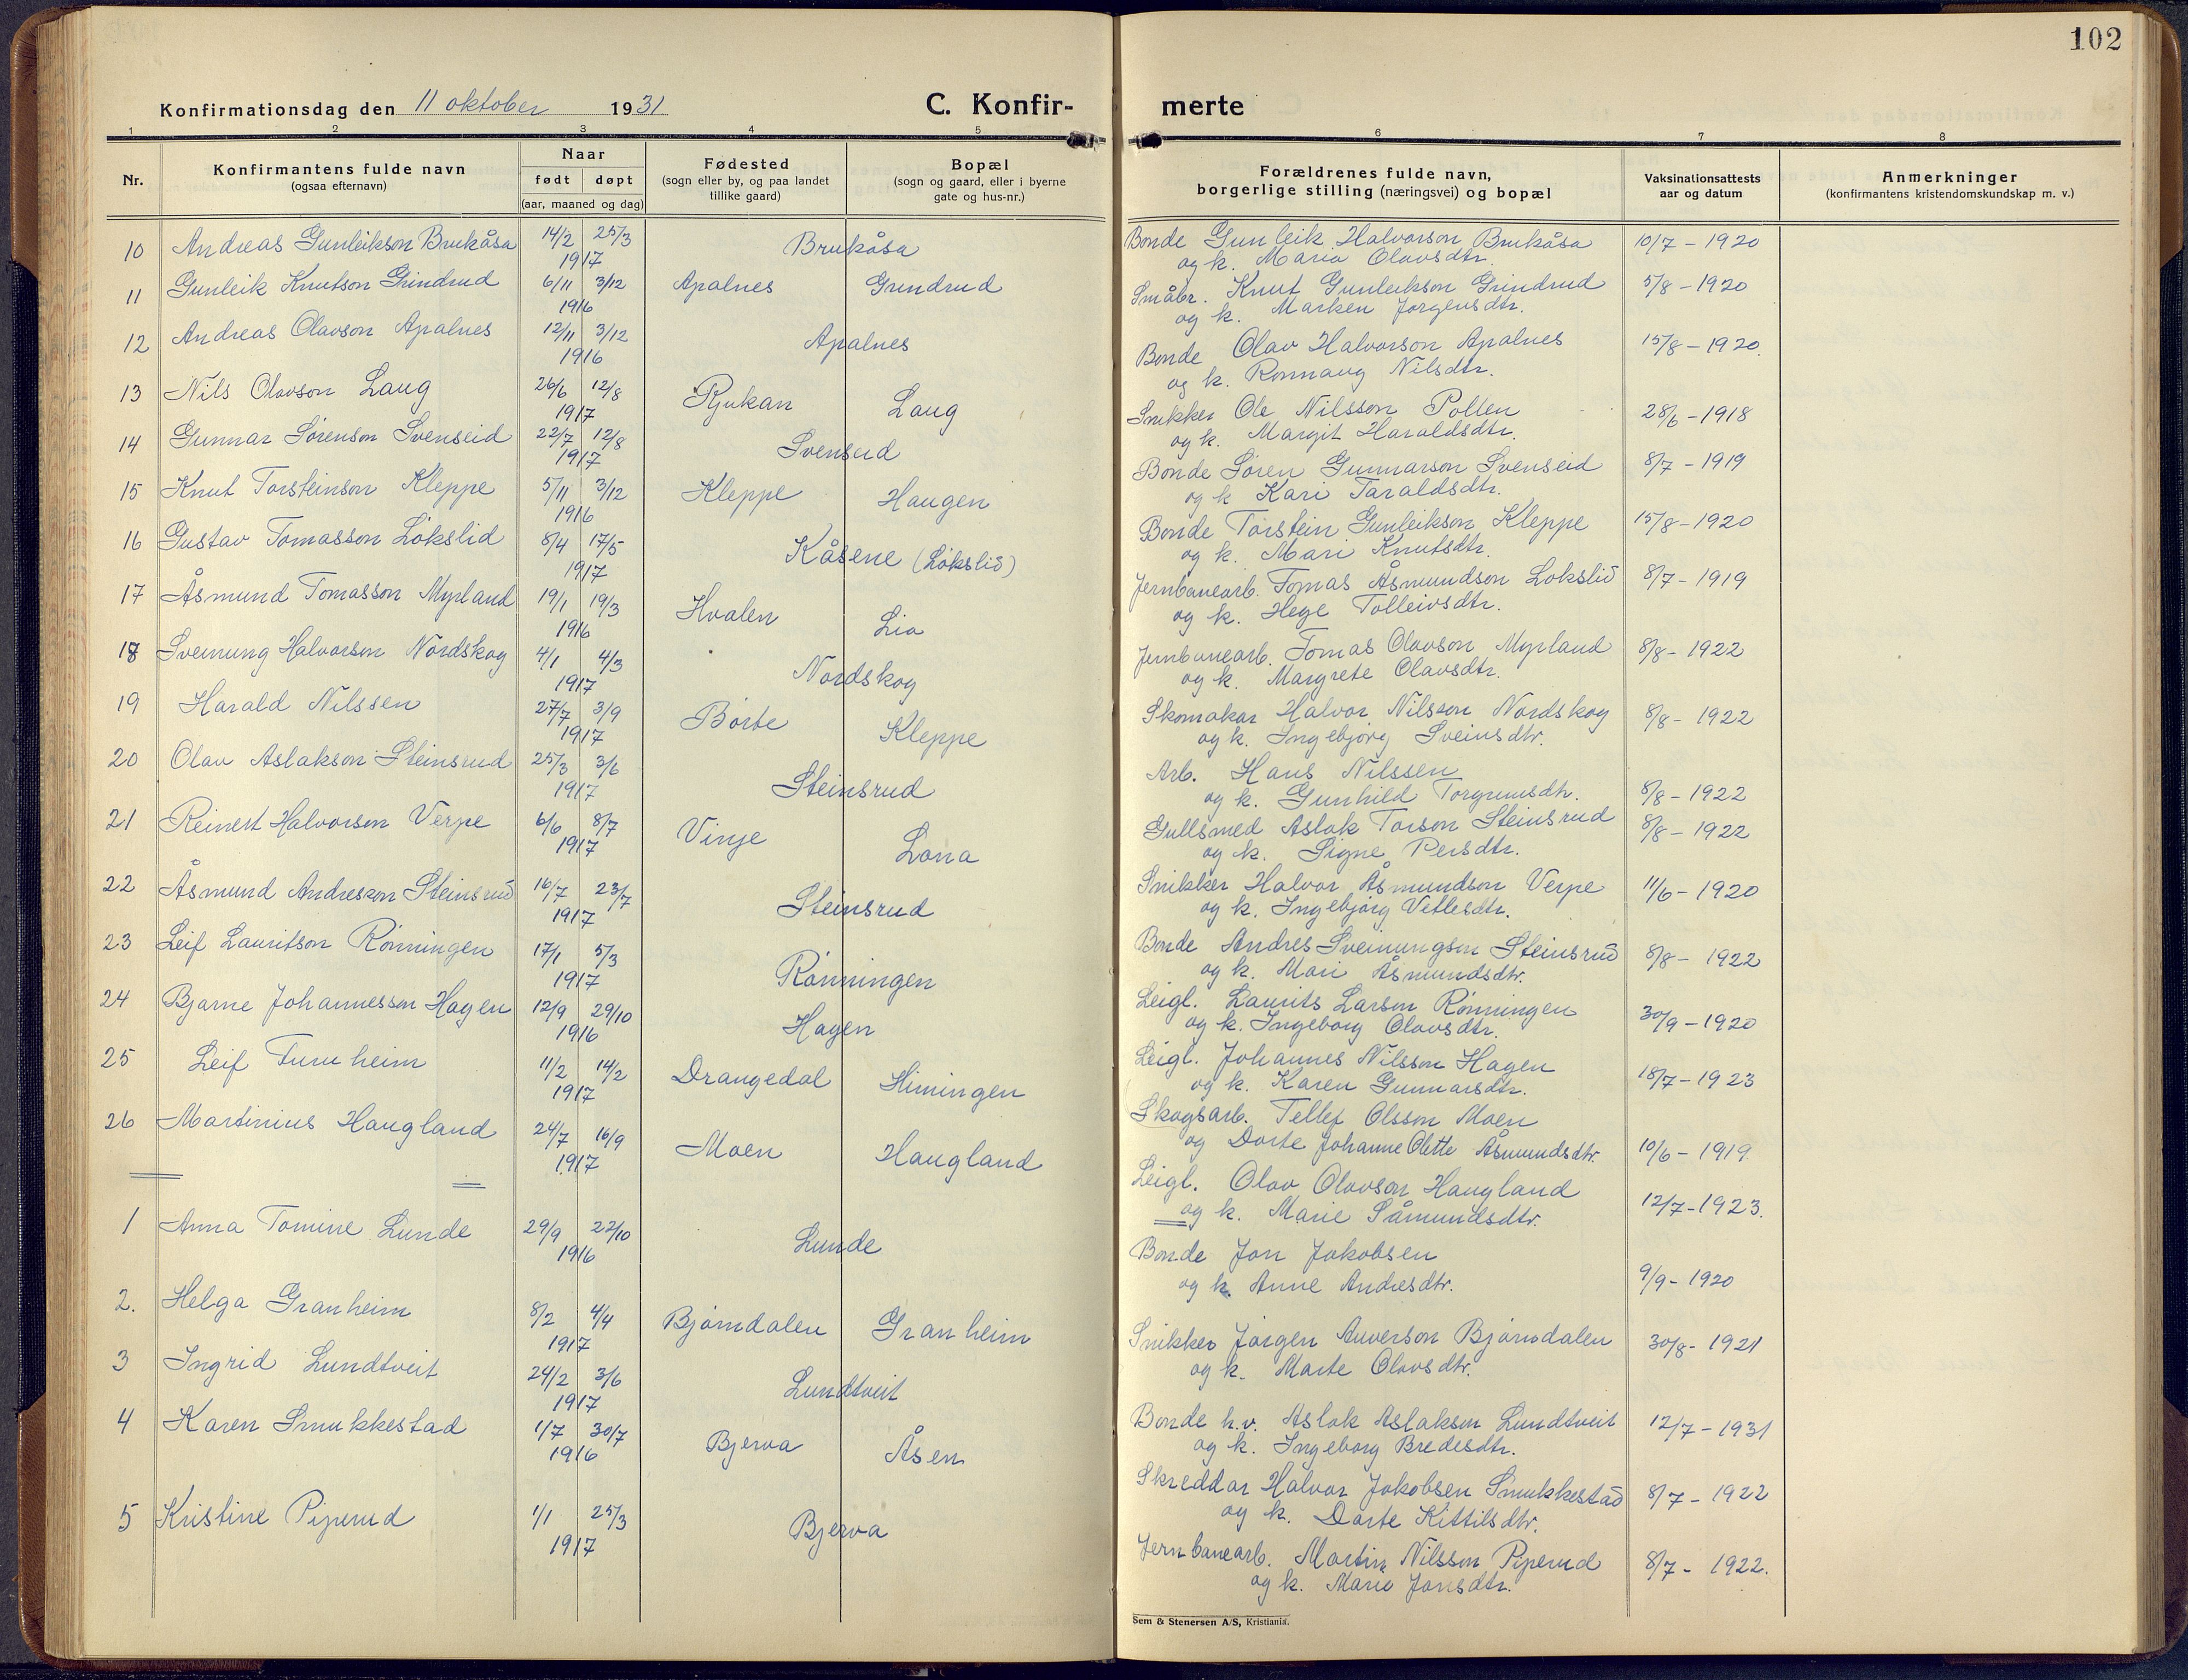 102
Konfirmationsdag den 11 oktober 1931
C. Konfir-
merte
1 2 3 4 5 6 7 8
Nr.
Konfirmantens fulde navn
(ogsaa efternavn)
Naar
født døpt
(aar, maaned og dag)
Fødested
(sogn eller by, og paa landet
tillike gaard)
Bopæl
(sogn og gaard, eller i byerne
gate og hus-nr.)
Forældrenes fulde navn,
borgerlige stilling (næringsvei) og bopæl
Vaksinationsattests
aar og datum
Anmerkninger
(konfirmantens kristendomskundskap m. v.)
10 Andreas Gunleikson Brukåsa 14/2 25/3 Brukåsa
1917
11 Gunleik Knutson Grindrud 6/11 3/12 Apalnes Grindrud
1916
12 Andreas Olavson Apalnes 12/11 3/12 Apalnes
1916
13 Nils Olavson Laug 26/6 12/8 Rjukan Laug
1917
14 Gunnar Sørenson Svenseid 22/7 12/8 Svenseid
1917
15 Knut Torsteinson Kleppe 5/11 3/12 Kleppe Haugen
1916
16 Gustav Tomasson Løkslid 8/4 17/5 Kåsene (Løkslid)
1917
17 Åsmund Tomasson Myrland 19/1 19/3 Hvalen Lia
1916
18 Sveinung Halvorson Nordskog 4/1 4/3 Nordskog
1917
19 Harald Nilssen 27/7 3/9 Børte Kleppe
1917
20 Olav Aslakson Steinsrud 25/3 3/6 Steinsrud
1917
21 Reinert Halvorson Verpe 6/6 8/7 Vinje Lona
1917
22 Åsmund Andresson Steinsrud 16/7 23/7 Steinsrud
1917
23 Leif Lauritson Rønningen 17/1 5/3 Rønningen
1917
24 Bjarne Johannesson Hagen 12/9 29/10 Hagen
1916
25 Leif Furuheim 11/2 14/2 Drangedal Himingen
1917
26 Martinius Haugland 24/7 16/9 Moen Haugland
1917
1 Anna Tomine Lunde 29/9 22/10 Lunde
1916
2. Helga Granheim 8/2 4/4 Bjørndalen Granheim
1917
3 Ingrid Lundtveit 24/2 3/6 Lundtveit
1917
4 Karen Smukkestad 1/7 30/7 Bjerva Åsen
1916
5 Kristine Piperud 1/1 25/3 Bjerva
1917
Bonde Gunleik Halvorson Brukåsa 10/7 - 1920
og k. Maria Olavsdtr.
Småbr. Knut Gunleikson Grindrud 5/8 - 1920
og k. Marken Jørgensdtr.
Bonde Olav Halvorson Apalnes 15/8 - 1920.
og k. Rønnaug Nilsdtr.
Snikker Ole Nilsson Pollen 28/6 - 1918
og k. Margit Haraldsdtr.
Bonde Søren Gunnarson Svenseid 8/7 - 1919
og k Kari Taraldsdtr.
Bonde Torstein Gunleikson Kleppe 15/8 - 1920
og k. Mari Knutsdtr.
Jernbanearb. Tomas Åsmundson Løkslid 8/7 - 1919
og k. Hege Tolleivsdtr.
Jernbanearb. Tomas Olavson Myrland 8/8 - 1922
og k. Margrete Olavsdtr.
Skomakar Halvor Nilsson Nordskog 8/8 - 1922
og k. Ingebjørg Sveinsdtr.
Arb. Hans Nilssen
og k. Gunhild Torgrimsdtr. 8/8 - 1922
Gullsmed Aslak Torson Steinsrud 8/8 - 1922
og k. Signe Persdtr.
Snikker Halvor Åsmundson Verpe 11/6 - 1920
og k. Ingebjørg Vetlesdtr.
Bonde Andres Sveinungson Steinsrud 8/8 - 1922
og k. Mari Åsmundsdtr.
Leigl. Laurits Larson Rønningen 30/9 - 1920
og k. Ingeborg Olavsdtr.
Leigl. Johannes Nilsson Hagen 18/7 - 1923
og k. Karen Gunnarsdtr.
Skogsarb. Tellef Olsson Moen
og Dorte Johanne Olette Åsmundsdtr. 10/6 - 1919.
Leigl. Olav Olavson Haugland 12/7 - 1923.
og k. Marie Såmundsdtr.
Bonde Jon Jakobsen
og k. Anne Andresdtr. 9/9 - 1920
Snikker Jørgen Auverson Bjørndalen 30/8 - 1921
og k. Marte Olavsdtr.
Bonde h.v. Aslak Aslakson Lundtveit 12/7 - 1931
og k. Ingeborg Bredesdtr.
Skreddar Halvor Jakobsen Smukkestad 8/7 - 1922
og k. Dorte Kittilsdtr.
Jernbanearb. Martin Nilsson Piperud 8/7 - 1922.
og k. Marie Jonsdtr.
Sem & Stenersen A/S, Kristiania.